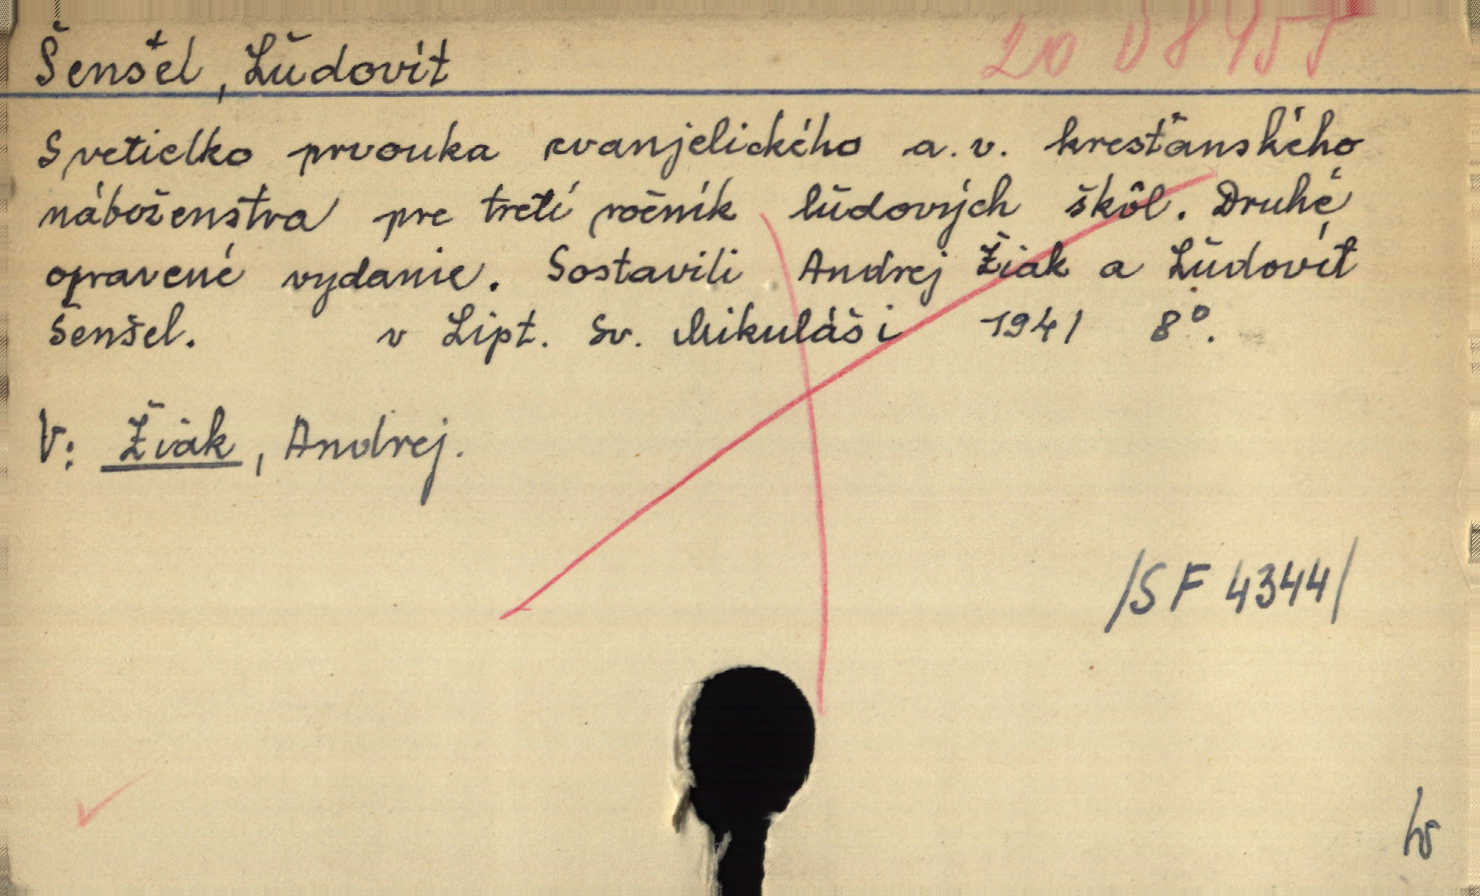 Šenšel, Ľudovít
20 D8455
Svetielko prvouka evanjelického a. v. kresťanského
náboženstva pre tretí ročník ľudových škôl. Druhé
opravené vydanie. Sostavili Andrej Žiak a Ľudovít
Šenšel. v Lipt. Sv. Mikuláši 1941 8°.
V: Žiak, Andrej.
/SF 4344/